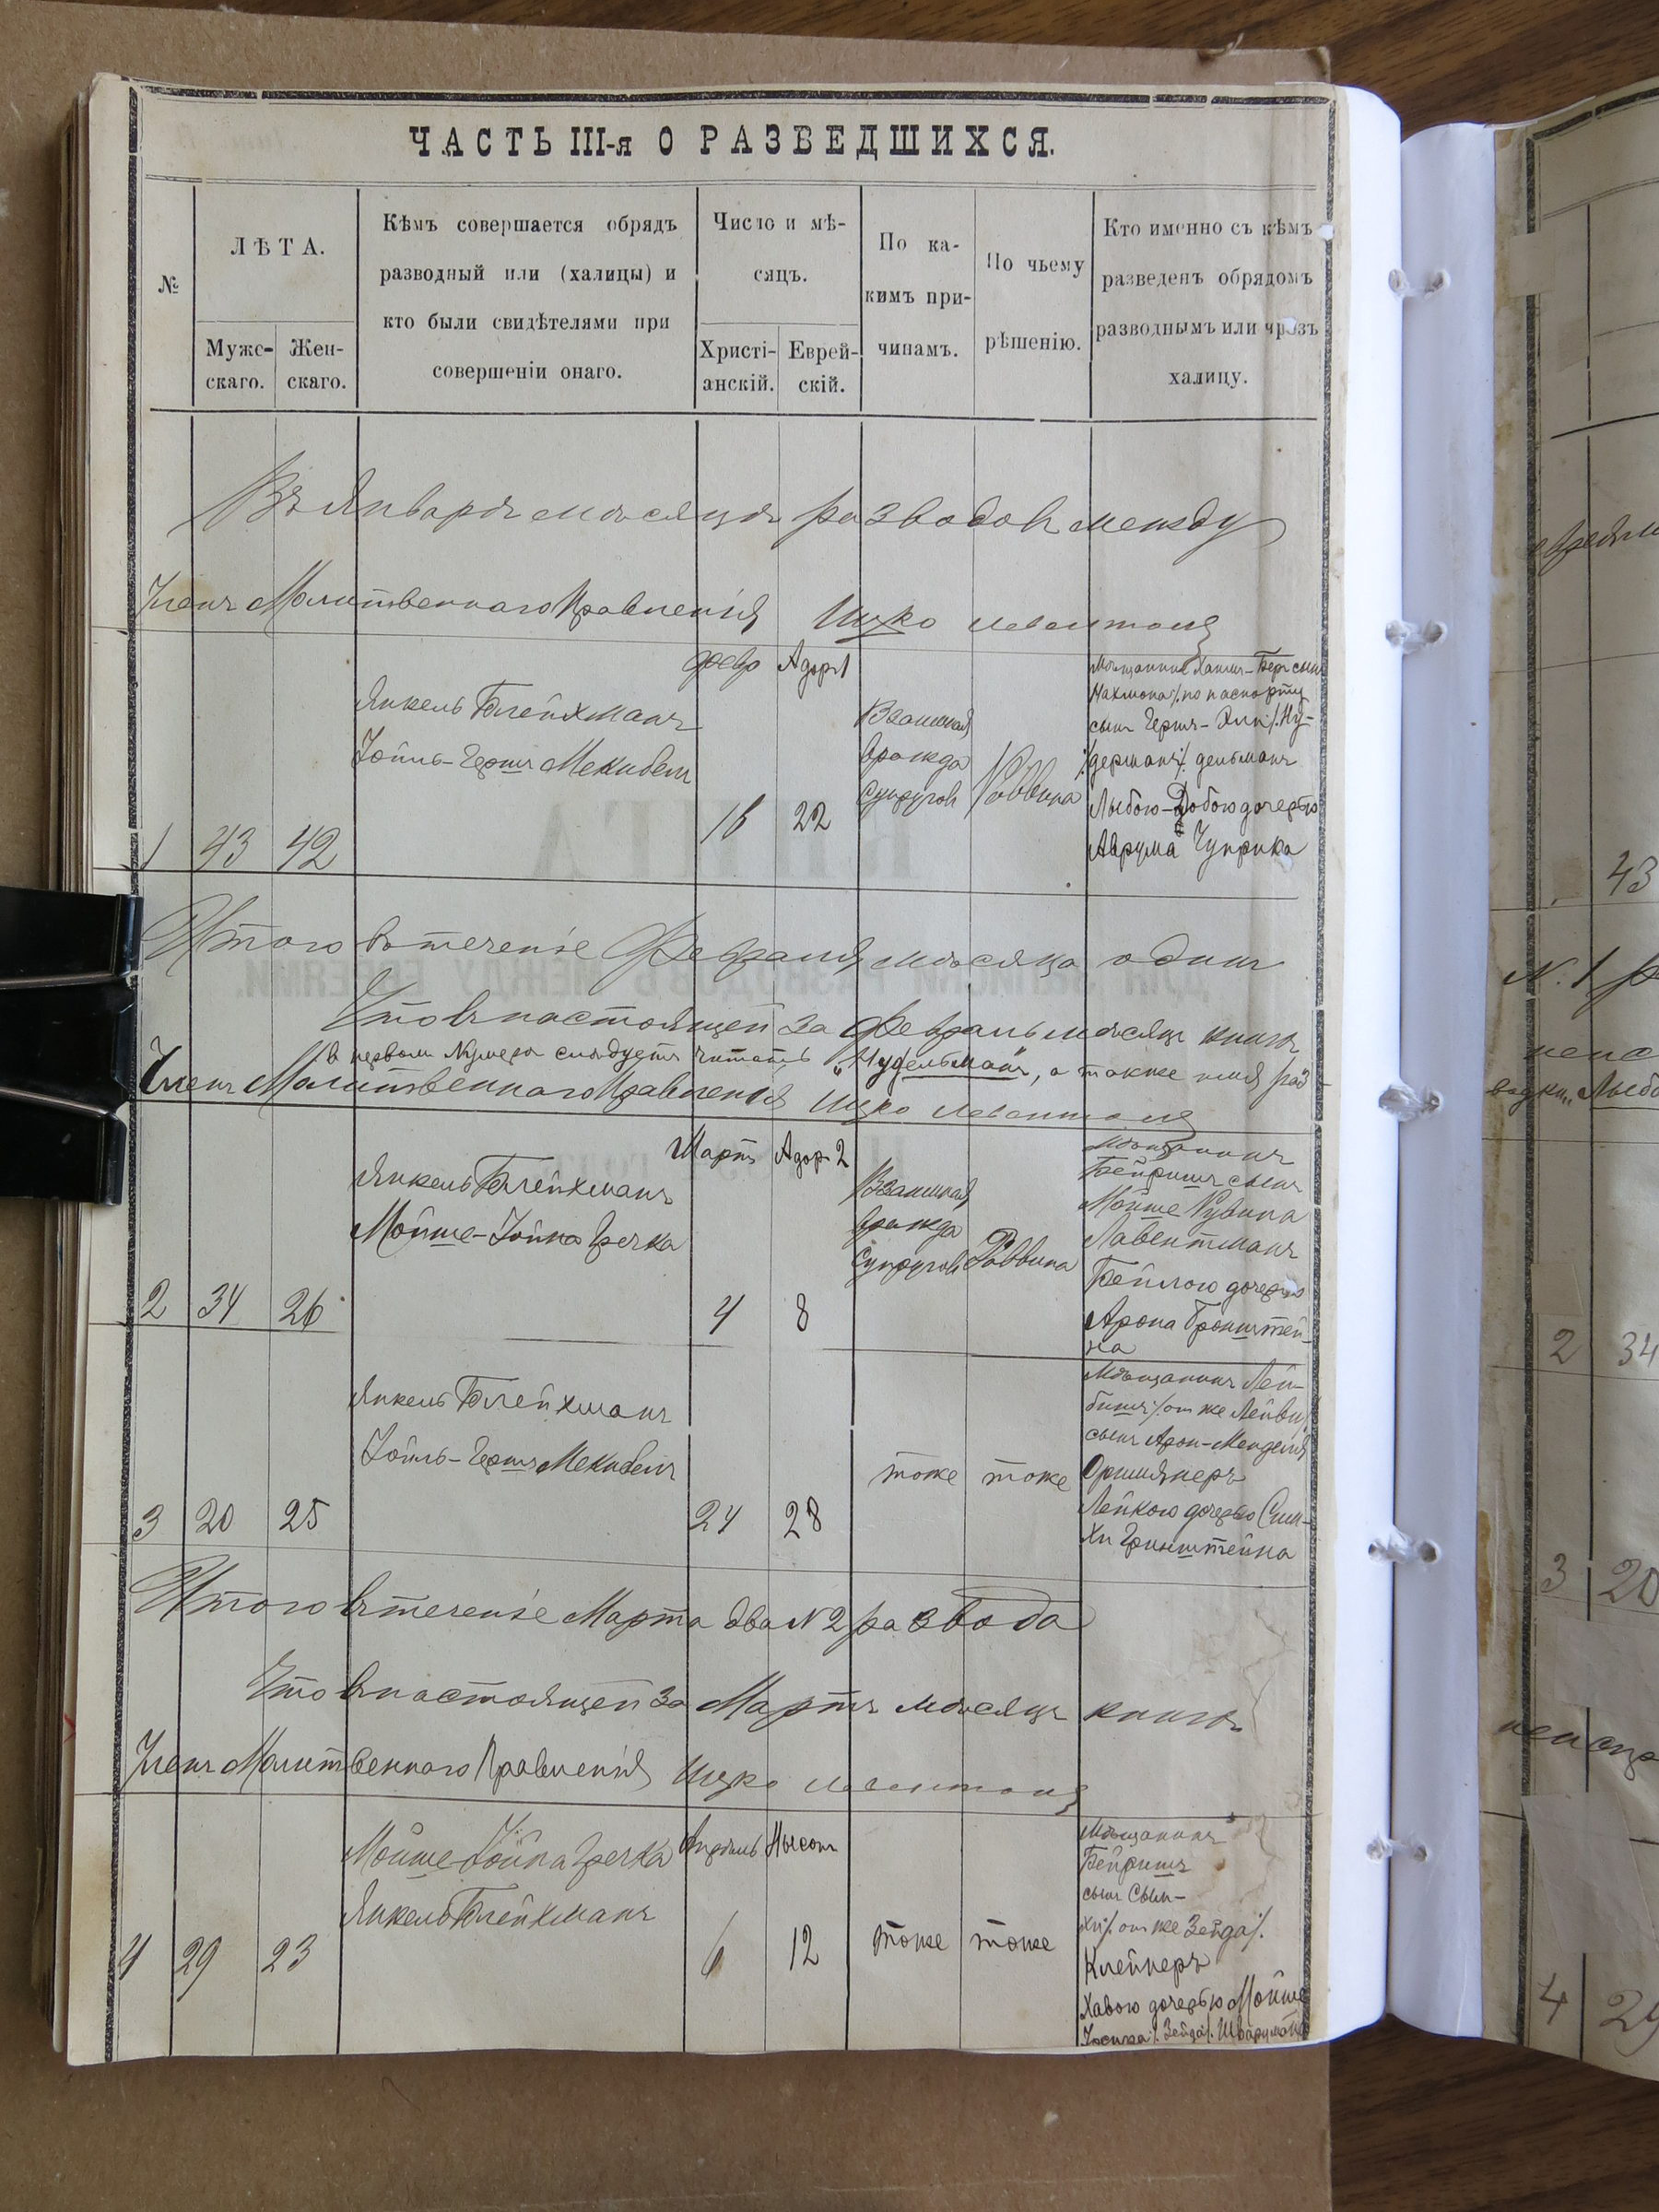 ЧАСТЬ III-я О РАЗВЕДШИХСЯ.
№
ЛѢТА.
Мужс-
скаго.
Жен-
скаго.
Кѣмъ совершается обрядъ
разводный или (халицы) и
кто были свидѣтелями при
совершеніи онаго.
Число и мѣ-
сяцъ.
Христі-
анскій.
Еврей-
скій.
По ка-
кимъ при-
чинамъ.
По чьему
рѣшенію.
Кто именно съ кѣмъ
разведенъ обрядомъ
разводнымъ или чрезъ
халицу.
Въ Январѣ мѣсяцѣ разводовъ между
Членъ Молитвеннаго Правленія Ицко
февр Адор 1
1 43 42
Янкель Блейхманъ
Іойль-Гершъ
16 22
Взаимная
вражда
супруговъ
Раввина
Мѣщанинъ Хаимъ-Бер сынъ
Нахмона /. по паспорту
сынъ Гершъ- /. Ну-
/. дерманъ /. дельманъ
Лыбою-Добою дочерью
Аврума Чуприка
Итого втеченіе Февраля мѣсяца одинъ
Что въ настоящей за Февраль мѣсяцъ книгѣ
в первом Нумерѣ слѣдуетъ читать „Нудельманъ", а также имя раз-
Членъ Молитвеннаго Правленія Ицко
Мартъ Адор 2
2 34 26
Янкель Блейхманъ
Мойше-Іойна Гречка
4 8
Взаимная
вражда
супруговъ
Раввина
Мѣщанинъ
Бейришъ сынъ
Мойше Рувина
Лавентманъ
Бейлою дочерью
Арона Бронштей-
на
3 20 25
Янкель Блейхманъ
Іойль-Гершъ
24 28
тоже тоже
Мѣщанинъ Лей-
бишъ /. он же Лейви /.
сынъ Арон-Менделя
Лейкою дочерью Сим-
хи Гринштейна
Итого втеченіе Марта два № 2 развода
Что въ настоящей за Мартъ мѣсяцъ книгѣ
Членъ Молитвеннаго Правленія Ицко
Апрѣль Нысонъ
4 29 23
Мойше-Іойна Гречка
Янкель Блейхманъ
6 12
тоже тоже
Мѣщанинъ
Бейришъ
сынъ Сым-
хи /. он же Зейда /.
Клейнеръ
Хавою дочерью Мойше
/. Зейда /. Шварцмана
43
N. 1
2 34
3 20
4 29